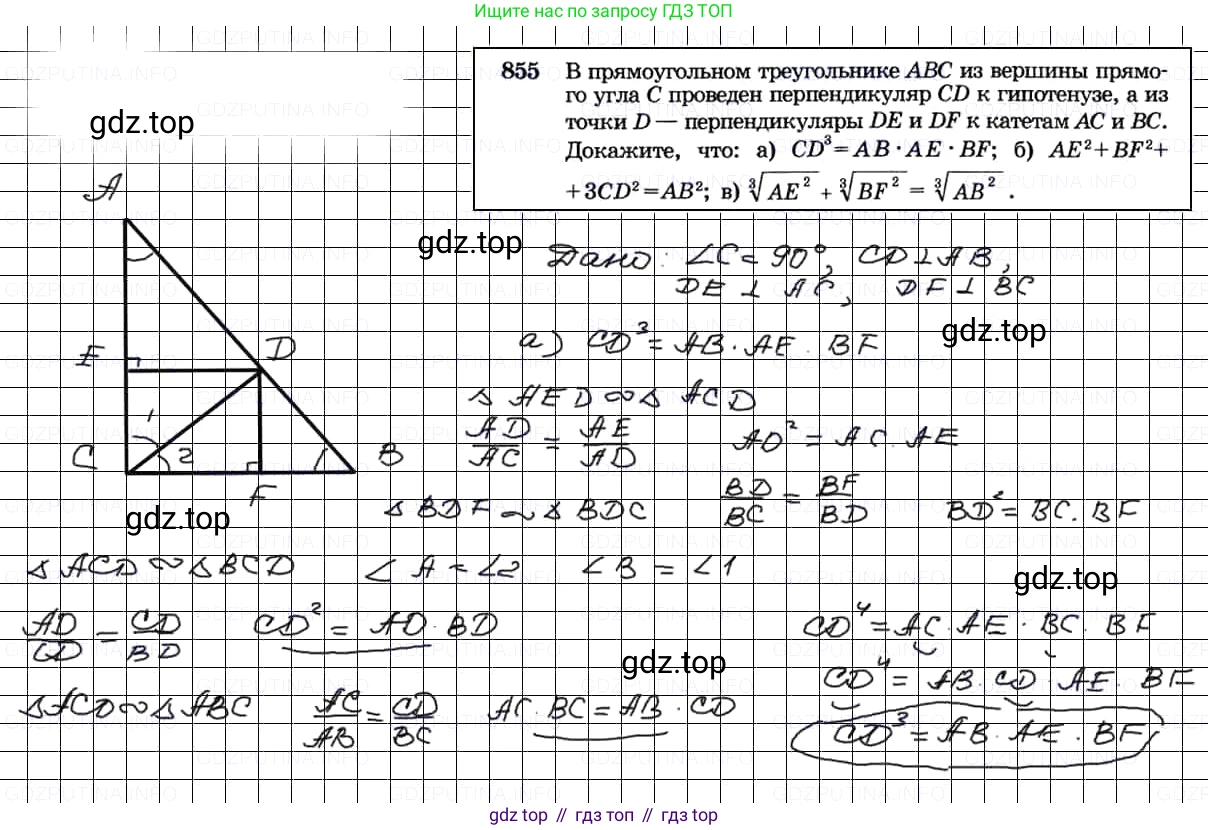 Ищите нас по запросу ГДЗ ТОП
855 В прямоугольном треугольнике ABC из вершины прямо-
го угла C проведен перпендикуляр CD к гипотенузе, а из
точки D — перпендикуляры DE и DF к катетам AC и BC.
Докажите, что: а) CD³=AB·AE·BF; б) AE²+BF²+
+3CD²=AB²; в) ∛AE² + ∛BF² = ∛AB² .
gdz.top
A
gdz.top
Дано: ∠C = 90°, CD⊥AB,
DE ⊥ AC, DF ⊥ BC
gdz.top
а) CD³ = AB · AE · BF
E
D
△ AED ∾ △ ACD
AD/AC = AE/AD AD² = AC · AE
1
C 2 B
F
gdz.top
△BDF ∾ △BDC BD/BC = BF/BD BD² = BC · BF
△ACD ∾ △BCD ∠A = ∠2 ∠B = ∠1
gdz.top
AD/CD = CD/BD CD² = AD · BD CD⁴ = AC · AE · BC · BF
gdz.top
CD⁴ = AB · CD · AE · BF
△ACD ∾ △ABC AC/AB = CD/BC AC · BC = AB · CD
CD³ = AB · AE · BF
gdz top // гдз топ // gdz top
GDZPUTINA.INFO